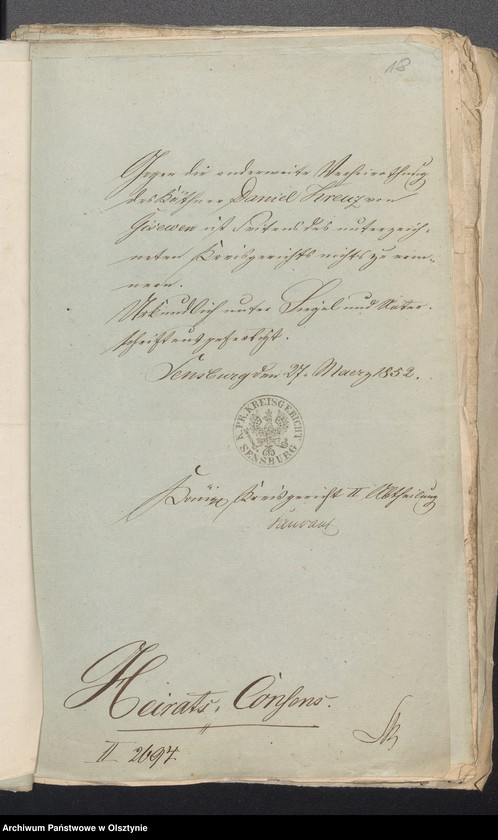 18
Gegen die anderweite Verheirathung
des Käthner Daniel Krenz von
Gisewen ist Seitens des unterzeich-
neten Kreisgerichts nichts zu erin-
nern.
Urkundlich unter Siegel und Unter-
schrift ausgefertigt.
Sensburg den 27. Maerz 1852.
K. PR. KREISGERICHT
SENSBURG
Königl Kreisgericht II Abtheilung
Heirats-Consens.
II 2697
Archiwum Państwowe w Olsztynie